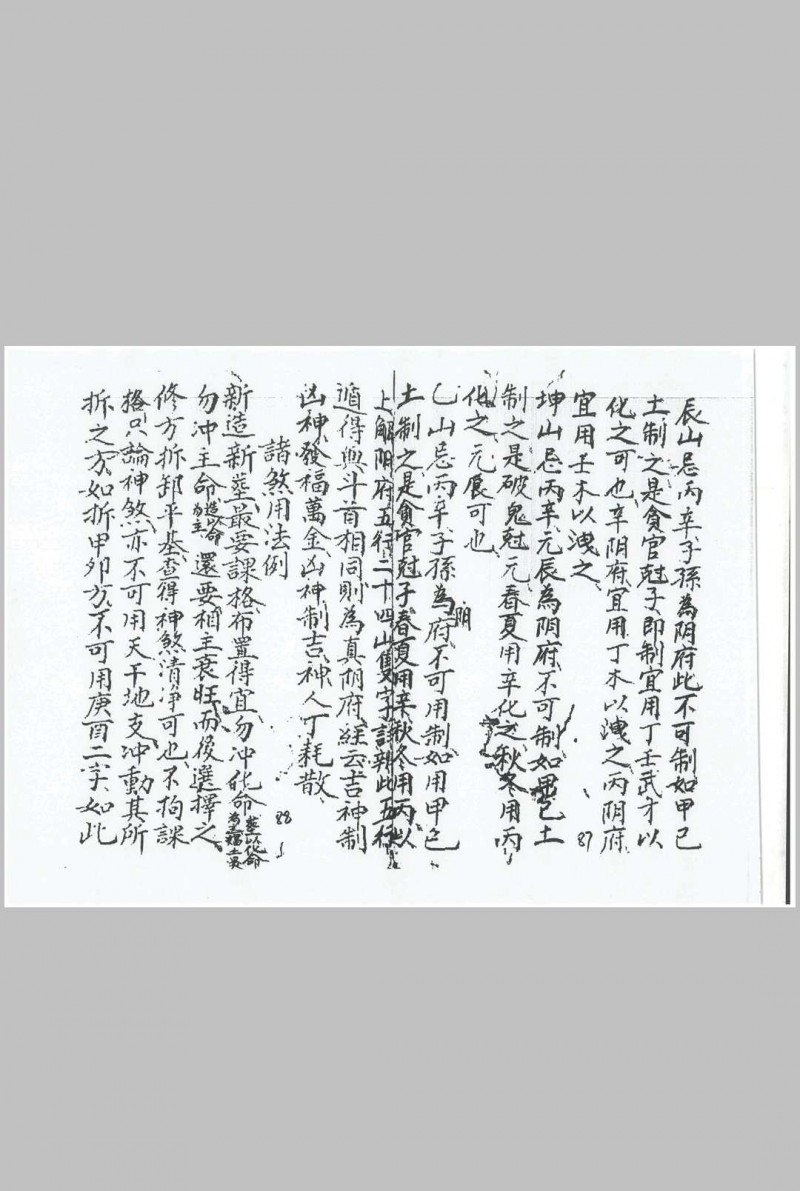 辰山忌丙辛子孫為阴府此不可制如甲己
土制之是貪官尅子即制宜用丁壬武才以
化之可也辛阴府宜用丁木以洩之丙阴府
宜用壬木以洩之
87
坤山忌丙辛元辰為阴府不可制如甲己土
制之是破鬼尅元春夏用辛化之秋冬用丙
化之元辰可也
乙山忌丙辛子孫為阴府不可用制如用甲己
土制之是貪官尅子春夏用辛秋冬用丙以
上解阴府五行二十四山雙字計到此五行
遁得與斗首相同則為真阴府経云吉神制
凶神發福萬金凶神制吉神人丁耗散
88
諸煞用法例
新造新墓最要課格布置得宜勿冲化命墓以化命為主
勿冲主命造以命為主還要相主衰旺而後選擇之
修方拆卸平基查得神煞清净可也不拘課
格只論神煞亦不可用天干地支冲動其所
拆之方如拆甲卯方不可用庚酉二字如此